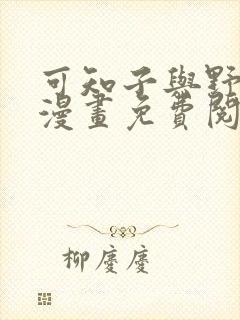 可知子與野
漫畫免費閱
柳慶慶